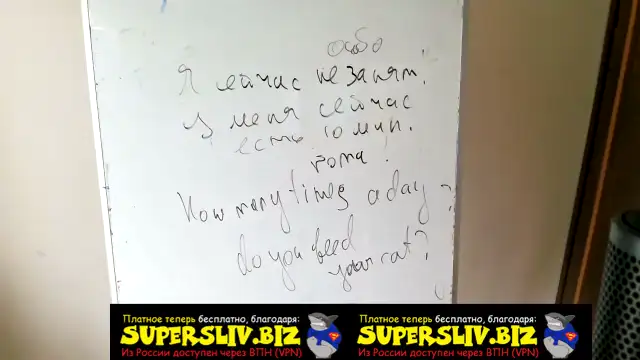 особо
Я сейчас не занят.
У меня сейчас
есть 10 мин.
Рома.
How many times a day
do you feed
your cat?
Платное теперь бесплатно, благодаря:
SUPERSLIV.BIZ
Из России доступен через ВПН (VPN)
Платное теперь бесплатно, благодаря:
SUPERSLIV.BIZ
Из России доступен через ВПН (VPN)